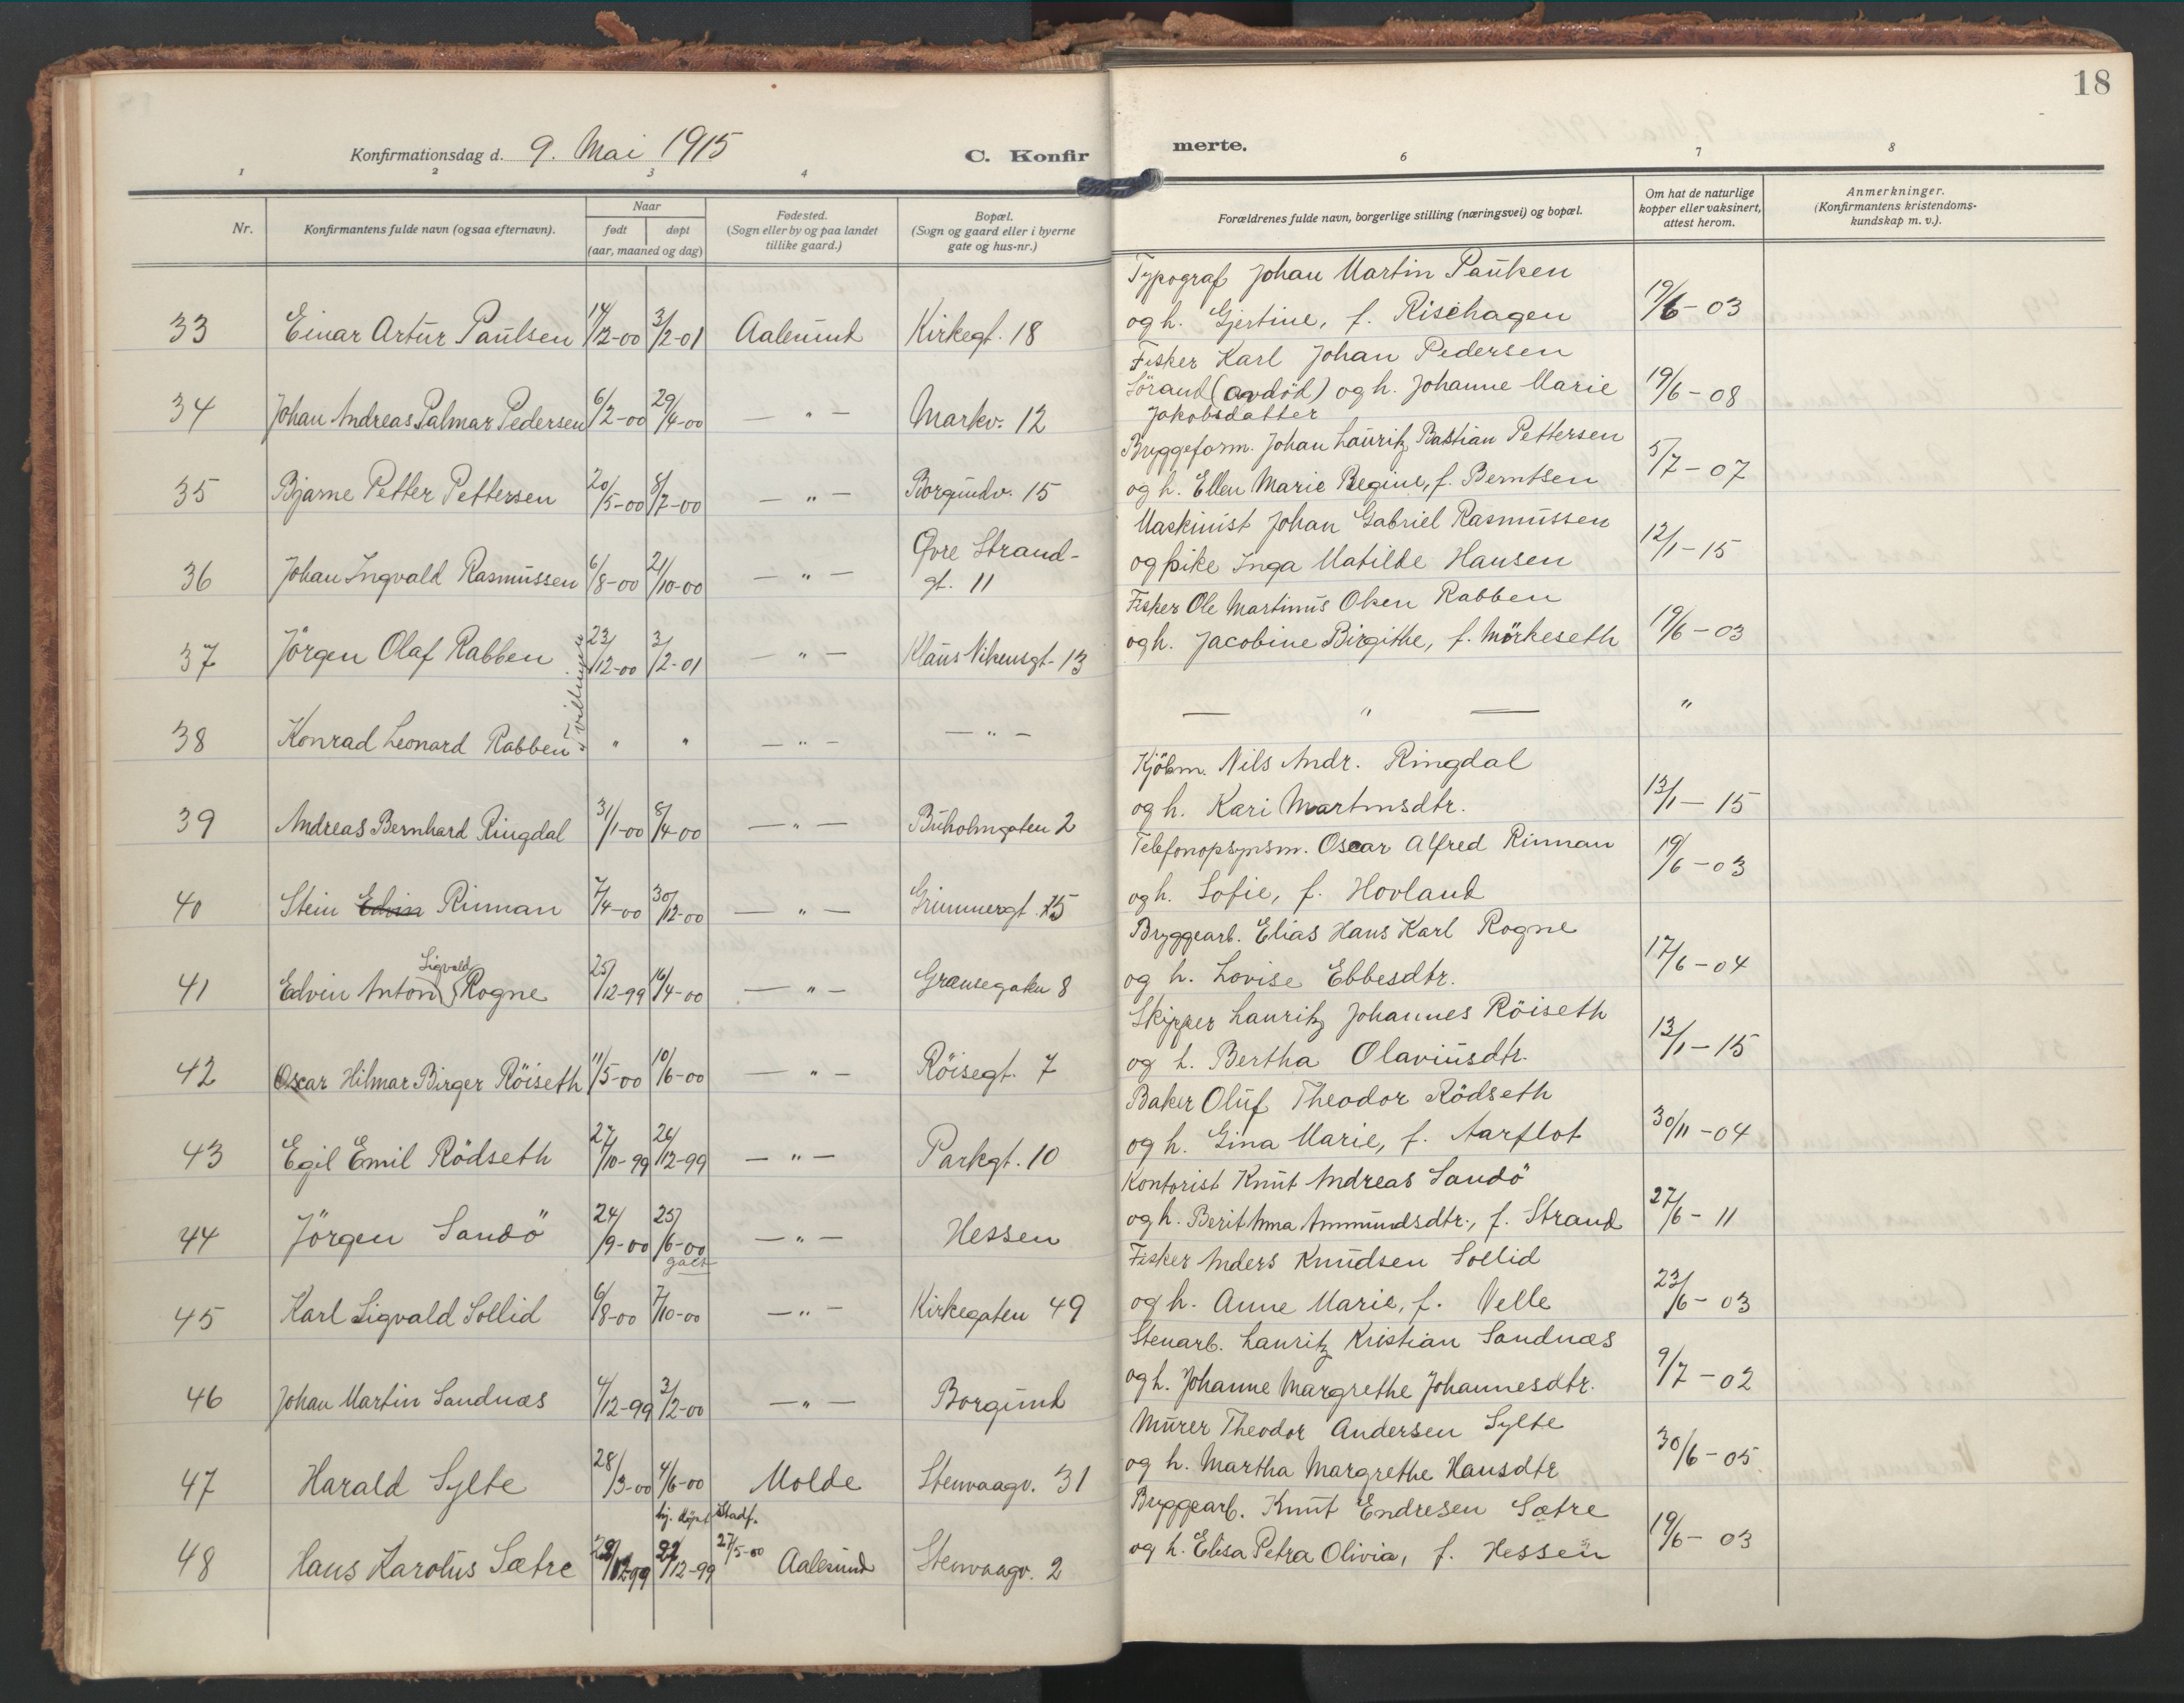 18
Konfirmationsdag d. 9. Mai 1915
C. Konfirmerte.
1 2 3 4 6 7 8
Nr.
Konfirmantens fulde navn (ogsaa efternavn).
Naar
født døpt
(aar, maaned og dag)
Fødested.
(Sogn eller by og paa landet
tillike gaard.)
Bopæl.
(Sogn og gaard eller i byerne
gate og hus-nr.)
Forældrenes fulde navn, borgerlige stilling (næringsvei) og bopæl.
Om hat de naturlige
kopper eller vaksinert,
attest herom.
Anmerkninger.
(Konfirmantens kristendoms-
kundskap m. v.).
Typograf Johan Martin Paulsen
33 Einar Artur Paulsen 14/12-00 3/2-01 Aalesund Kirkegt. 18 og h. Gjertine, f. Risehagen 19/6-03
Fisker Karl Johan Pedersen
34 Johan Andreas Palmar Pedersen 6/2-00 29/4-00 — " — Markv. 12 Sörand (avdöd) og h. Johanne Marie 19/6-08
Jakobsdatter
Bryggeform. Johan Lauritz Bastian Pettersen
35 Bjarne Petter Pettersen 20/5-00 8/7-00 — " — Borgundv. 15 og h. Ellen Marie Regine, f. Berntsen 5/7-07
Maskinist Johan Gabriel Rasmussen
36 Johan Ingvald Rasmussen 6/8-00 21/10-00 — " — Øvre Strand-
gt. 11 og pike Inga Matilde Hansen 12/1-15
Fisker Ole Martinus Olsen Rabben
37 Jörgen Olaf Rabben 23/12-00 3/2-01 — " — Klaus Nilsensgt. 13 og h. Jacobine Birgithe, f. Mörkeseth 19/6-03
tvillinger
38 Konrad Leonard Rabben " " — " — — " — — " — "
Kjöbm. Nils Andr. Ringdal
39 Andreas Bernhard Ringdal 31/1-00 8/4-00 — " — Buholmgaten 2 og h. Kari Martinsdtr. 13/1-15
Telefonopsynsm. Oscar Alfred Rinnan
40 Stein Edvin Rinnan 7/4-00 30/12-00 — " — Grimmergt. 15 og h. Sofie, f. Hovland 19/6-03
Bryggearb. Elias Hans Karl Rogne
Sigvald
41 Edvin Anton Rogne 25/12-99 16/4-00 — " — Grænsegaten 8 og h. Lovise Ebbesdtr. 17/6-04
Skipper Lauritz Johannes Röiseth
42 Oscar Hilmar Birger Röiseth 11/5-00 10/6-00 — " — Röisegt. 7 og h. Bertha Olaviusdtr. 13/1-15
Baker Oluf Theodor Rödseth
43 Egil Emil Rödseth 27/10-99 26/12-99 — " — Parkgt. 10 og h. Gina Marie, f. Aarflot 30/11-04
Kontorist Knut Andreas Sandö
44 Jörgen Sandö 24/9-00 25/6-00 — " — Hessen og h. Berit Anna Ammundsdtr., f. Strand 27/6-11
galt
Fisker Anders Knudsen Sollid
45 Karl Sigvald Sollid 6/8-00 7/10-00 — " — Kirkegaten 49 og h. Anne Marie, f. Velle 23/6-03
Stenarb. Lauritz Kristian Sandnæs
46 Johan Martin Sandnæs 4/12-99 3/2-00 — " — Borgund og h. Johanne Margrethe Johannesdtr. 9/7-02
Murer Theodor Andersen Sylte
47 Harald Sylte 28/3-00 4/6-00 Molde Stenvaagv. 31 og h. Martha Margrethe Hansdtr 30/6-05
hj. döpt Stadf. 27/5-00
Bryggearb. Knut Endresen Sætre
48 Hans Karolus Sætre 22/12-99 Aalesund Stenvaagv. 2 og h. Elisa Petra Olivia, f. Hessen 19/6-03